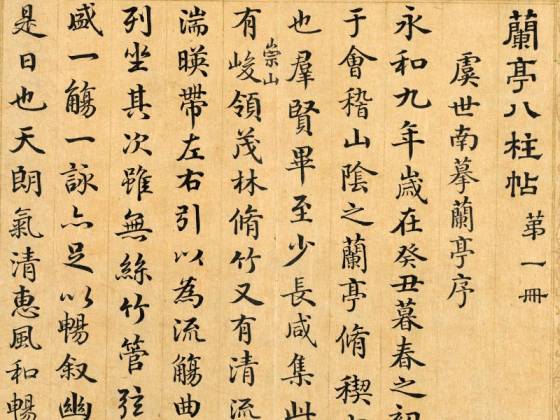 蘭亭八柱帖 第一冊
虞世南摹蘭亭序
永和九年歲在癸丑暮春之初
于會稽山陰之蘭亭脩稧
也羣賢畢至少長咸集此
有崇山峻領茂林脩竹又有清流
湍暎帶左右引以為流觴曲
列坐其次雖無絲竹管弦
盛一觴一詠亦足以暢叙幽
是日也天朗氣清惠風和暢